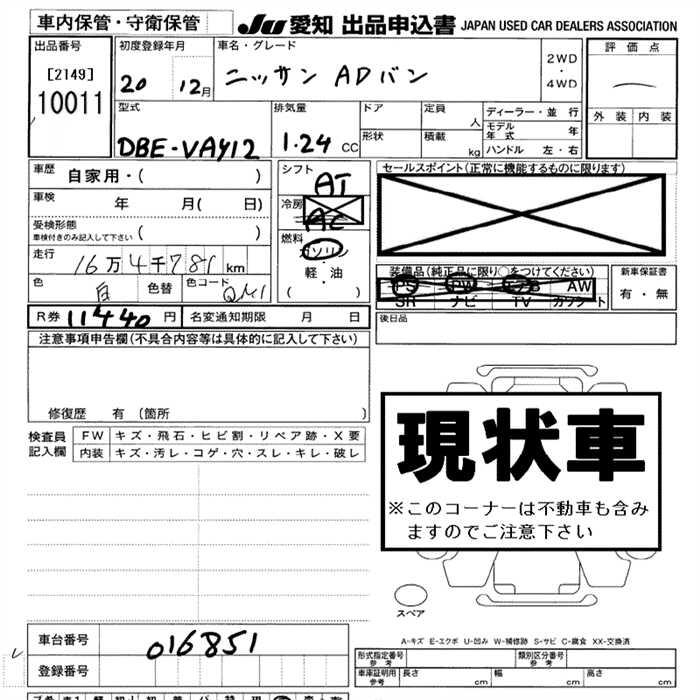 車内保管・守衛保管
JU 愛知 出品申込書 JAPAN USED CAR DEALERS ASSOCIATION
出品番号
[2149]
10011
初度登録年月
20 12月
車名・グレード
ニッサン ADバン
2WD
・
4WD
評価点
外装 内装
型式
DBE-VAY12
排気量
1.24 CC
ドア
形状
定員
人
積載
kg
ディーラー・並行
モデル年式 年
ハンドル 左・右
車歴 自家用・( )
車検 年 月( 日)
受検形態
車検付きのみ記入して下さい ( )
走行 16万4千781km
色 白 色替 色コード QM1
シフト
AT
冷房
AC
燃料
ガソリン
・
軽・油
( )
セールスポイント(正常に機能するものに限ります)
装備品(純正品に限り○をつけてください)
PS PW エアB AW
SR ナビ TV カワシート
新車保証書
有・無
R券 11440円 名変通知期限 月 日
後日品
注意事項申告欄(不具合内容等は具体的に記入して下さい)
修復歴 有(箇所 )
検査員
記入欄
FW キズ・飛石・ヒビ割・リペア跡・X要
内装 キズ・汚レ・コゲ・穴・スレ・キレ・破レ
現状車
※このコーナーは不動車も含み
ますのでご注意下さい
スペア
A-キズ E-エクボ U-凹み W-補修跡 S-サビ C-腐食 XX-交換済
車台番号 016851
登録番号
形式指定番号
参考
類別区分番号
参考
車庫証明用
参考
長さ cm 幅 cm 高さ cm